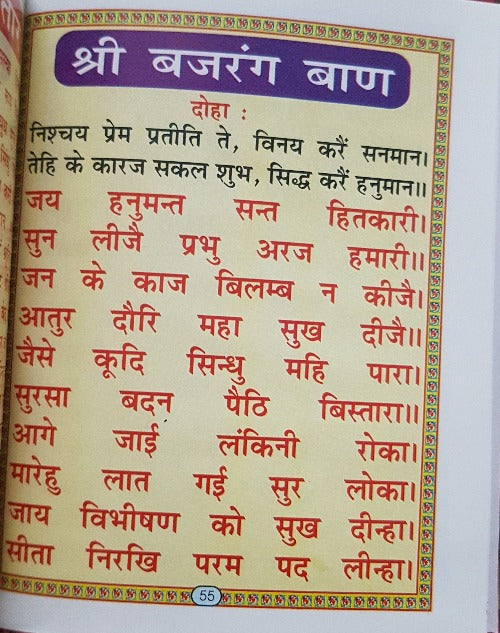 श्री बजरंग बाण
दोहा :
निश्चय प्रेम प्रतीति ते, विनय करैं सनमान।
तेहि के कारज सकल शुभ, सिद्ध करैं हनुमान॥
जय हनुमन्त सन्त हितकारी।
सुन लीजै प्रभु अरज हमारी॥
जन के काज बिलम्ब न कीजै।
आतुर दौरि महा सुख दीजै॥
जैसे कूदि सिन्धु महि पारा।
सुरसा बदन पैठि बिस्तारा॥
आगे जाई लंकिनी रोका।
मारेहु लात गई सुर लोका।
जाय विभीषण को सुख दीन्हा।
सीता निरखि परम पद लीन्हा।
55